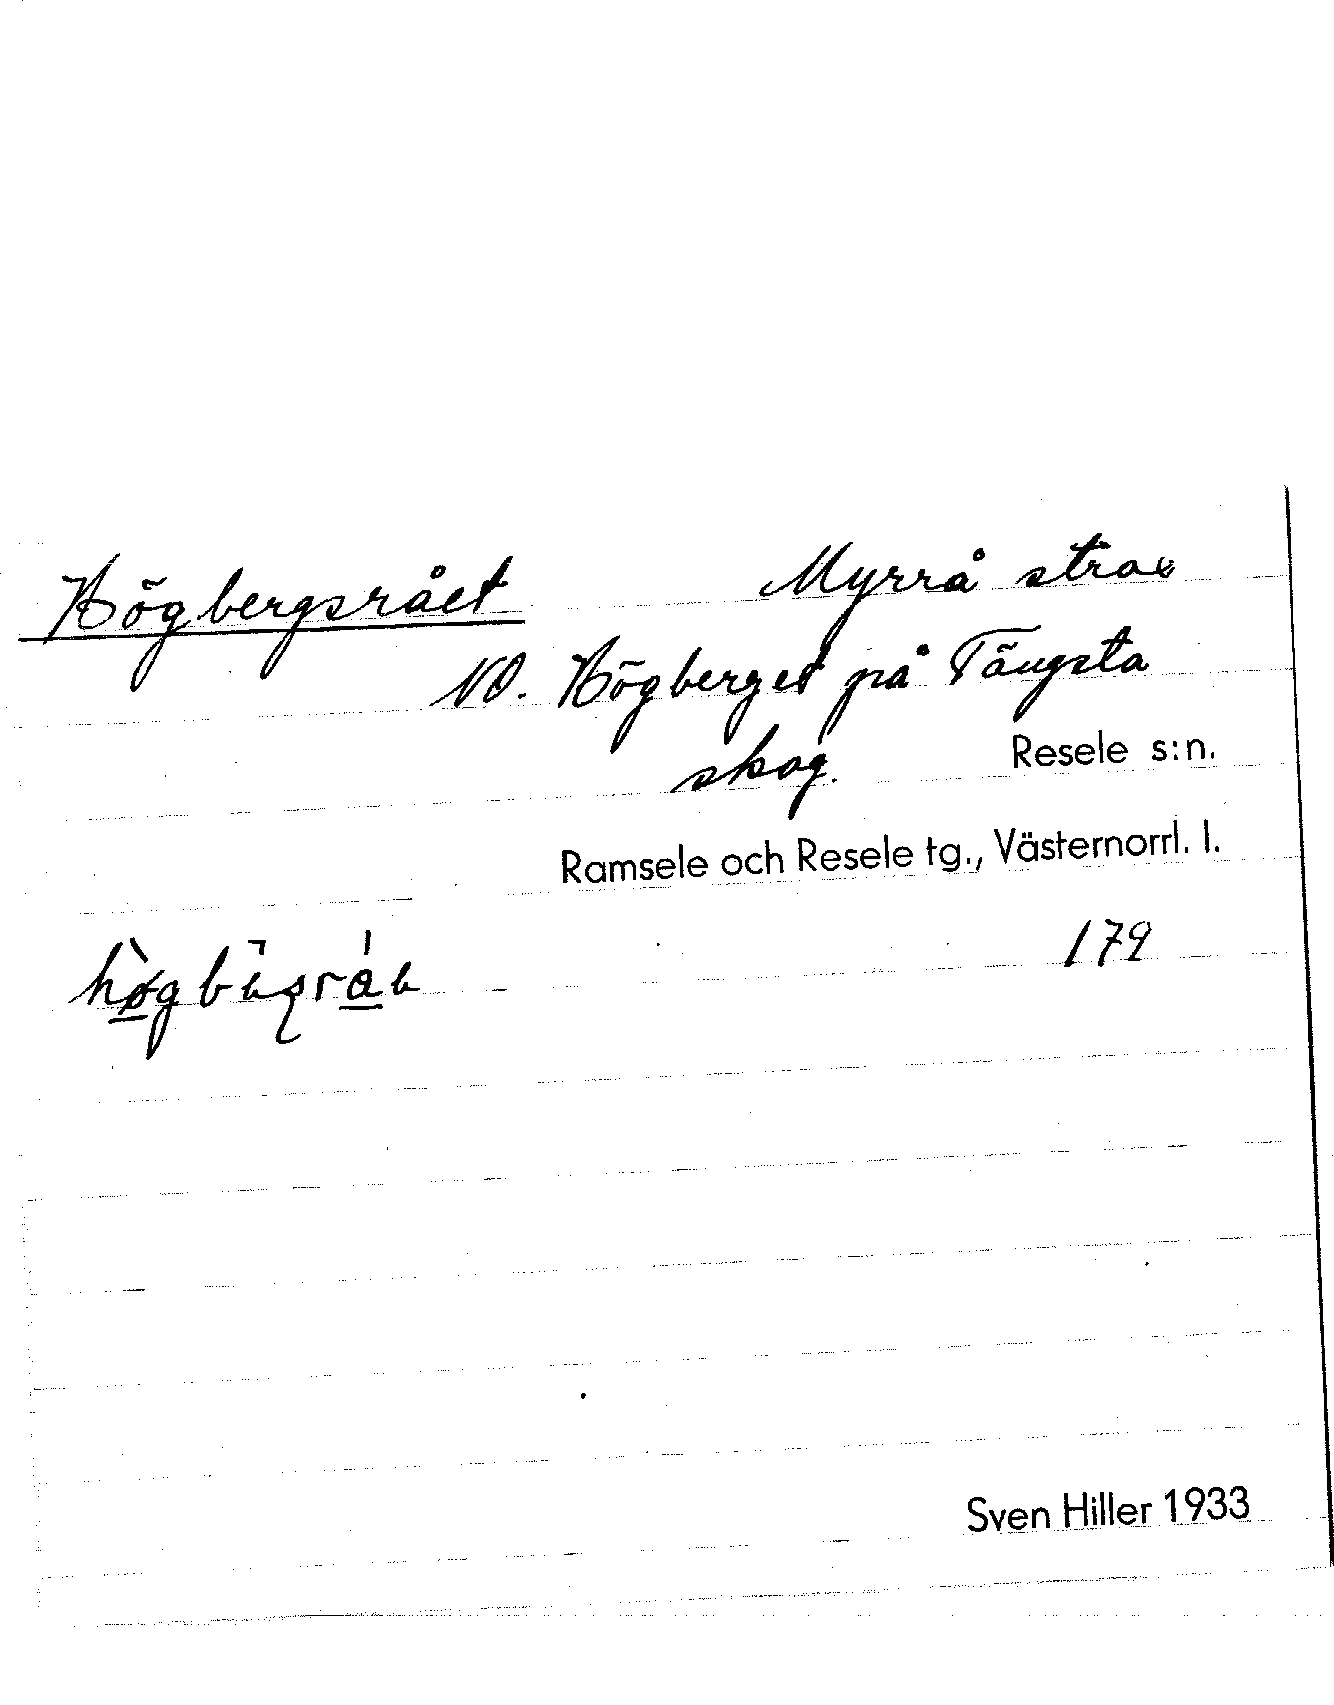 Högbergsrået Myrrå strax
NO. Högberget på Tängsta
skog. Resele s:n.
Ramsele och Resele tg., Västernorrl. l.
179
Sven Hiller 1933